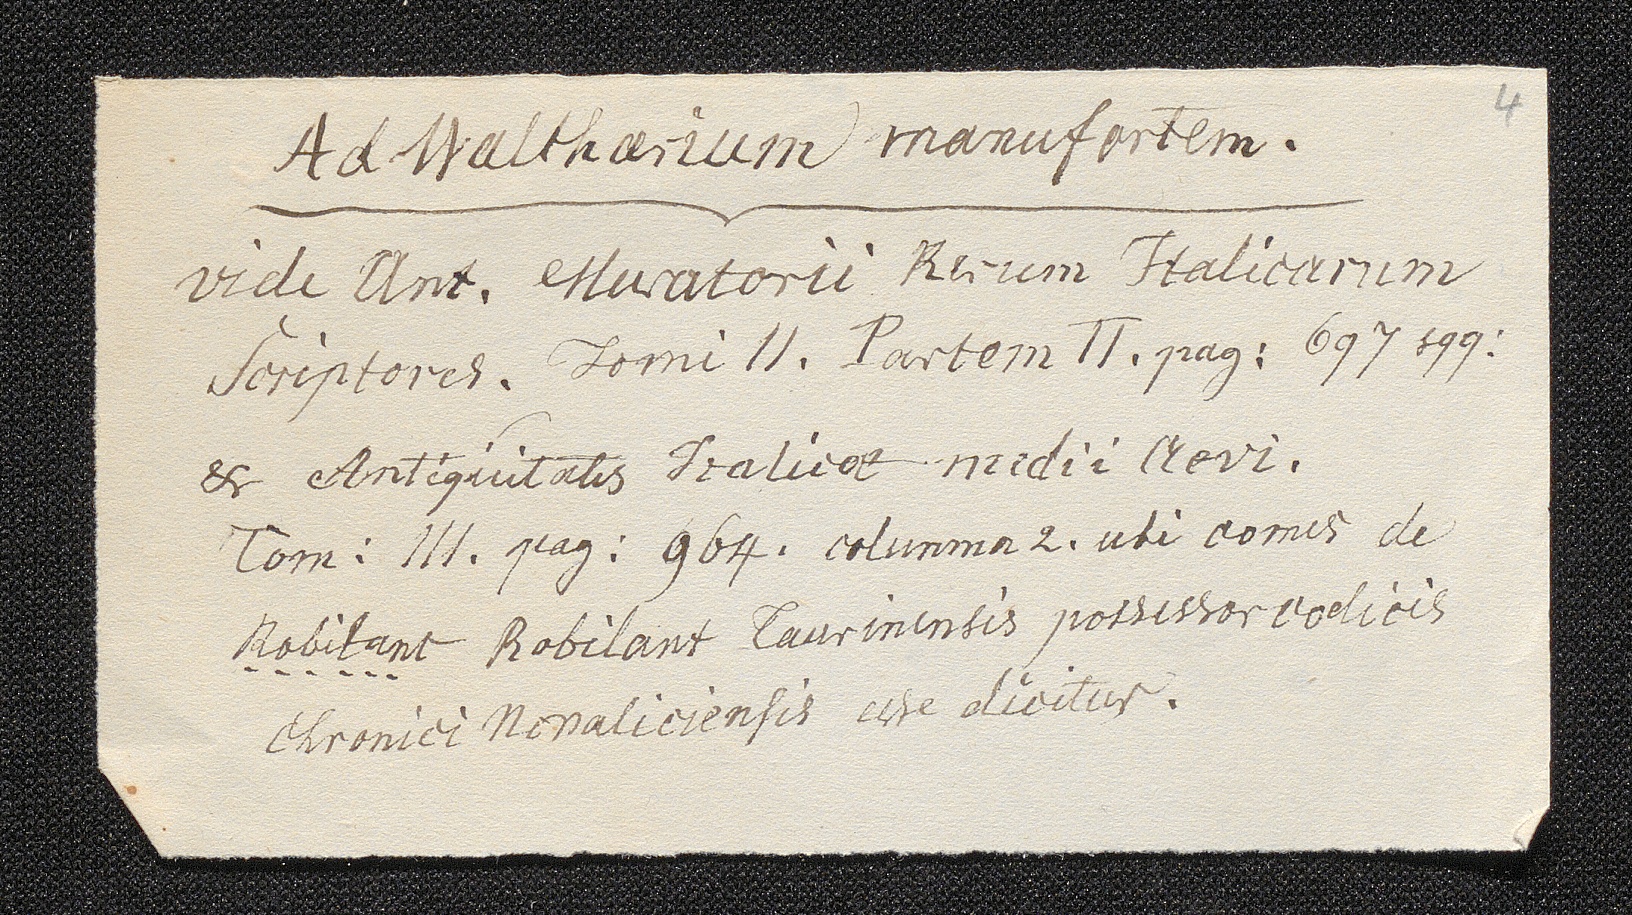 4
Ad Waltharium manufortem.
vide Ant. Muratorii Rerum Italicarum
Scriptores. Tomi II. Partem II. pag: 697 sqq:
& Antiquitates Italicæ medii Aevi.
Tom: III. pag: 964. columna 2. ubi comes de
Robilant Robilant Taurinensis possessor codicis
Chronici Novaliciensis esse dicitur.